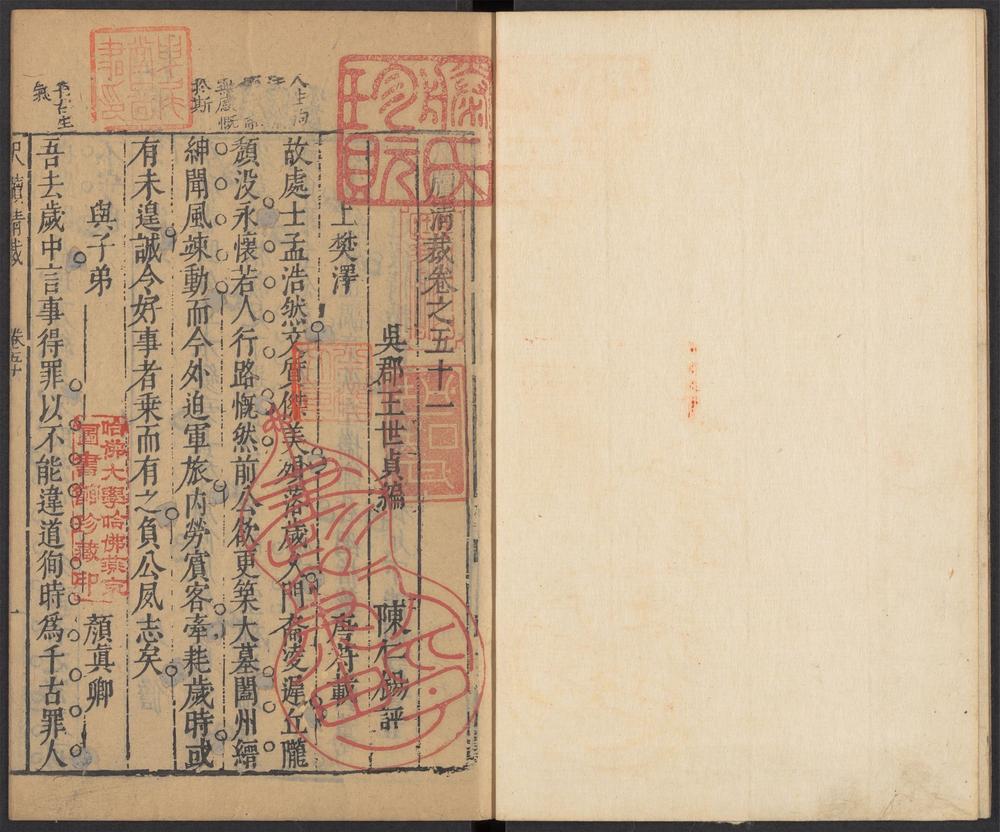 清裁卷之五十一
吳郡王世貞編 陳仁錫評
上樊澤 唐符載
故處士孟浩然文質傑美殞落歲久門裔淩遲丘隴
頹没永懷若人行路慨然前公欲更築大墓闔州縉
紳聞風竦動而今外迫軍旅内勞賓客牽耗歲時或
有未遑誠令好事者乗而有之負公夙志矣
與子弟 顏真卿
吾去歲中言事得罪以不能違道狥時爲千古罪人
尺牘清裁 卷五十一
哈佛大學哈佛燕京
圖書館珍藏印